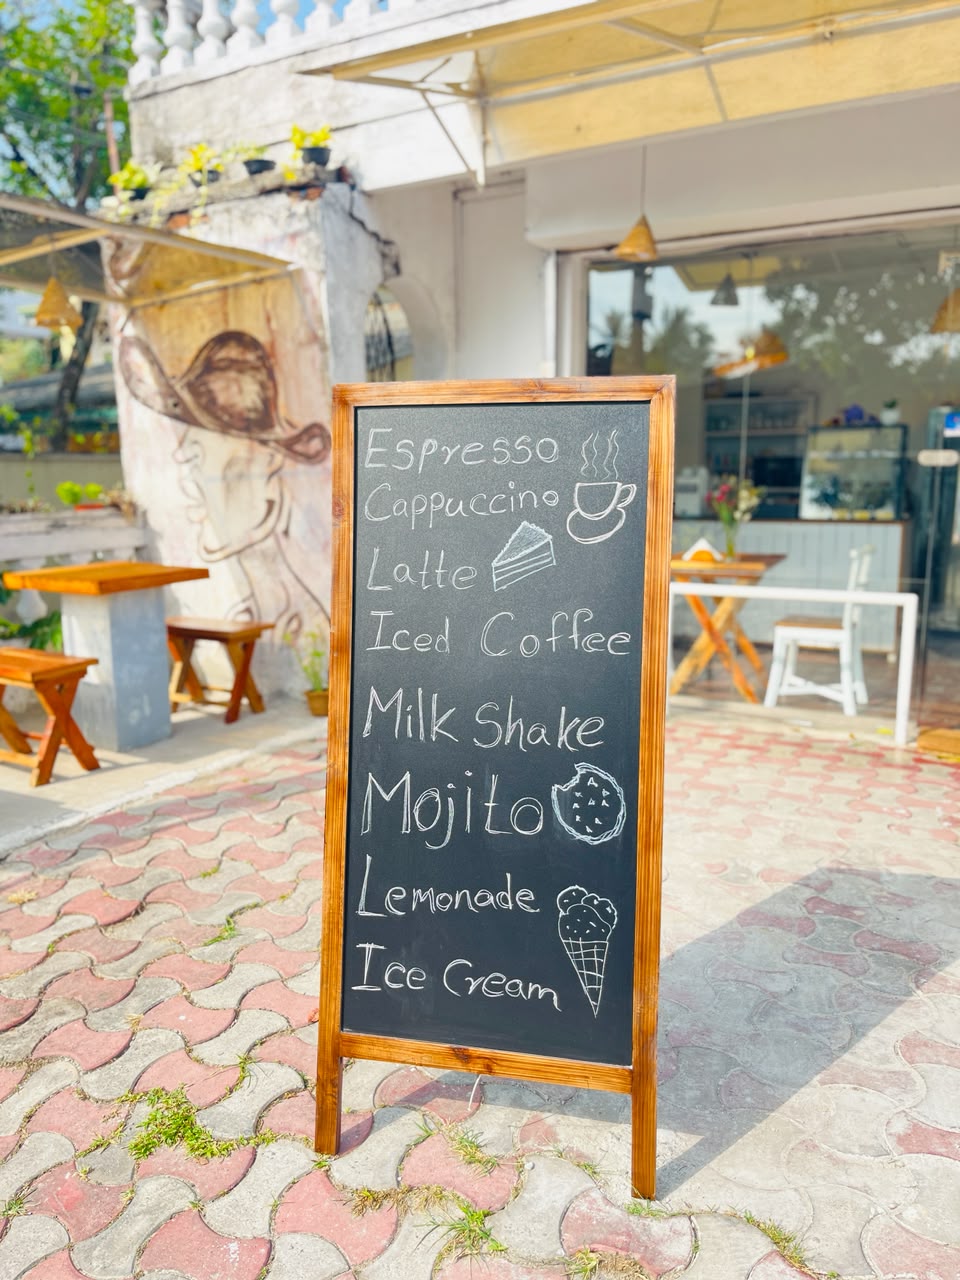 Espresso
Cappuccino
Latte
Iced Coffee
Milk Shake
Mojito
Lemonade
Ice Cream